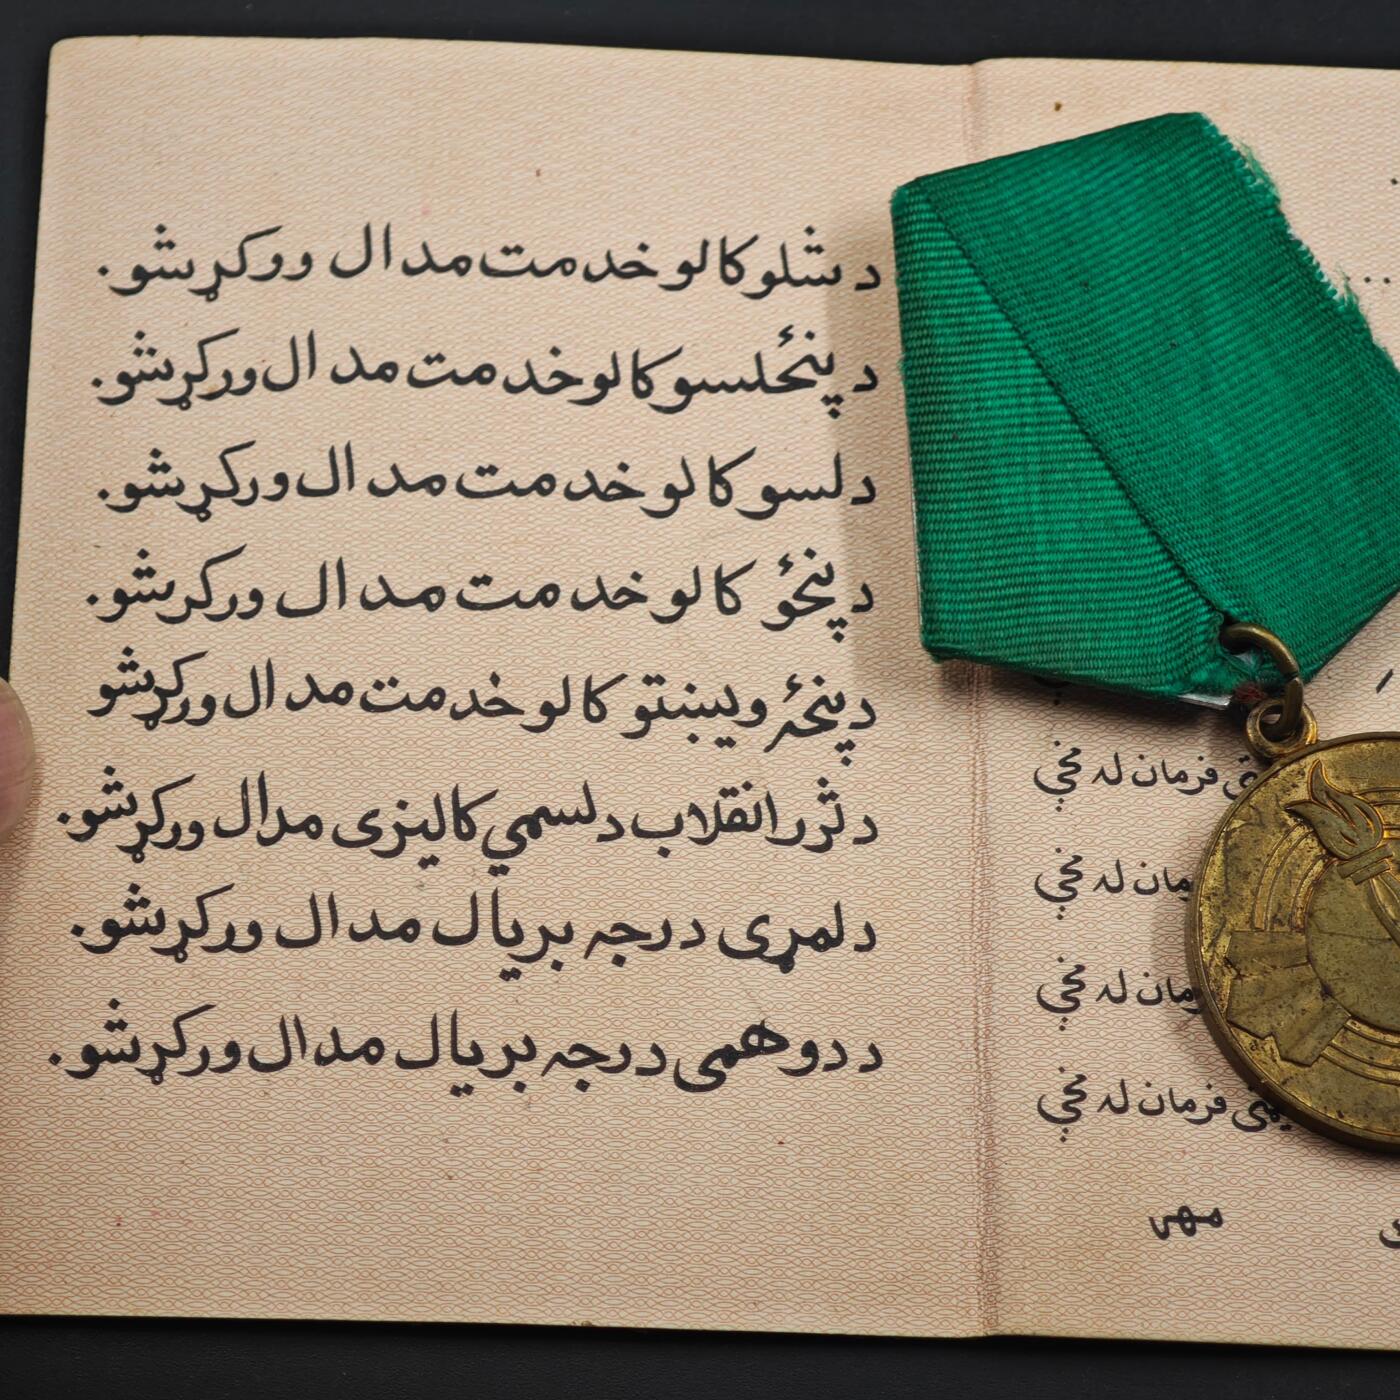 د شلو کالو خدمت مدال ورکړشو.
د پنځلسو کالو خدمت مدال ورکړشو.
د لسو کالو خدمت مدال ورکړشو.
د پنځو کالو خدمت مدال ورکړشو.
د پنځه ویښتو کالو خدمت مدال ورکړشو
د ثور انقلاب د لسمي کالیزی مدال ورکړشو.
د لمړی درجه بریال مدال ورکړشو.
د دوهمی درجه بریال مدال ورکړشو.
فرمان له مخې
له مخې
له مخې
فرمان له مخې
مهر